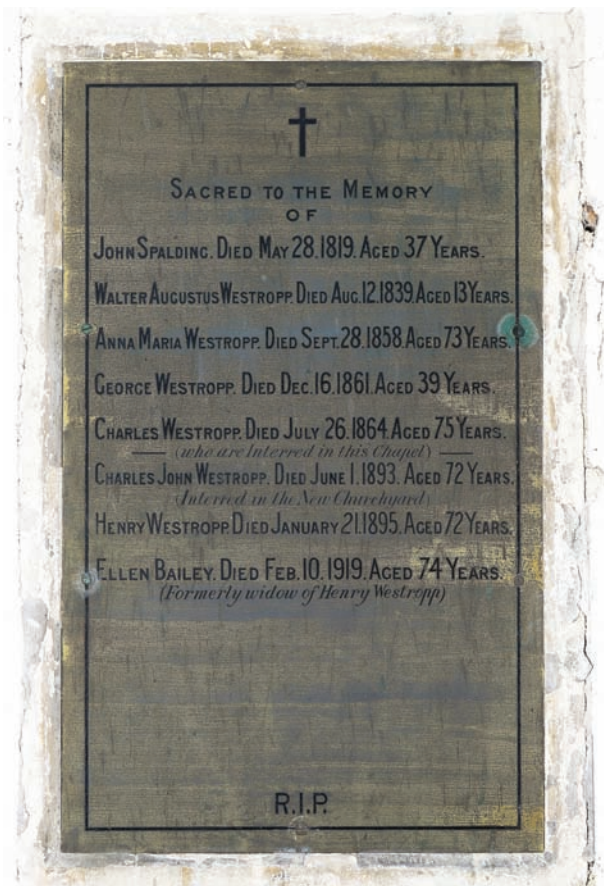 SACRED TO THE MEMORY
OF
JOHN SPALDING. DIED MAY 28. 1819. AGED 37 YEARS.
WALTER AUGUSTUS WESTROPP. DIED AUG. 12. 1839. AGED 13 YEARS.
ANNA MARIA WESTROPP. DIED SEPT. 28. 1858. AGED 73 YEARS.
GEORGE WESTROPP. DIED DEC. 16. 1861. AGED 39 YEARS.
CHARLES WESTROPP. DIED JULY 26. 1864. AGED 75 YEARS.
(who are Interred in this Chapel)
CHARLES JOHN WESTROPP. DIED JUNE 1. 1893. AGED 72 YEARS.
(Interred in the New Churchyard)
HENRY WESTROPP. DIED JANUARY 21. 1895. AGED 72 YEARS.
ELLEN BAILEY. DIED FEB. 10. 1919. AGED 74 YEARS.
(Formerly widow of Henry Westropp)
R.I.P.